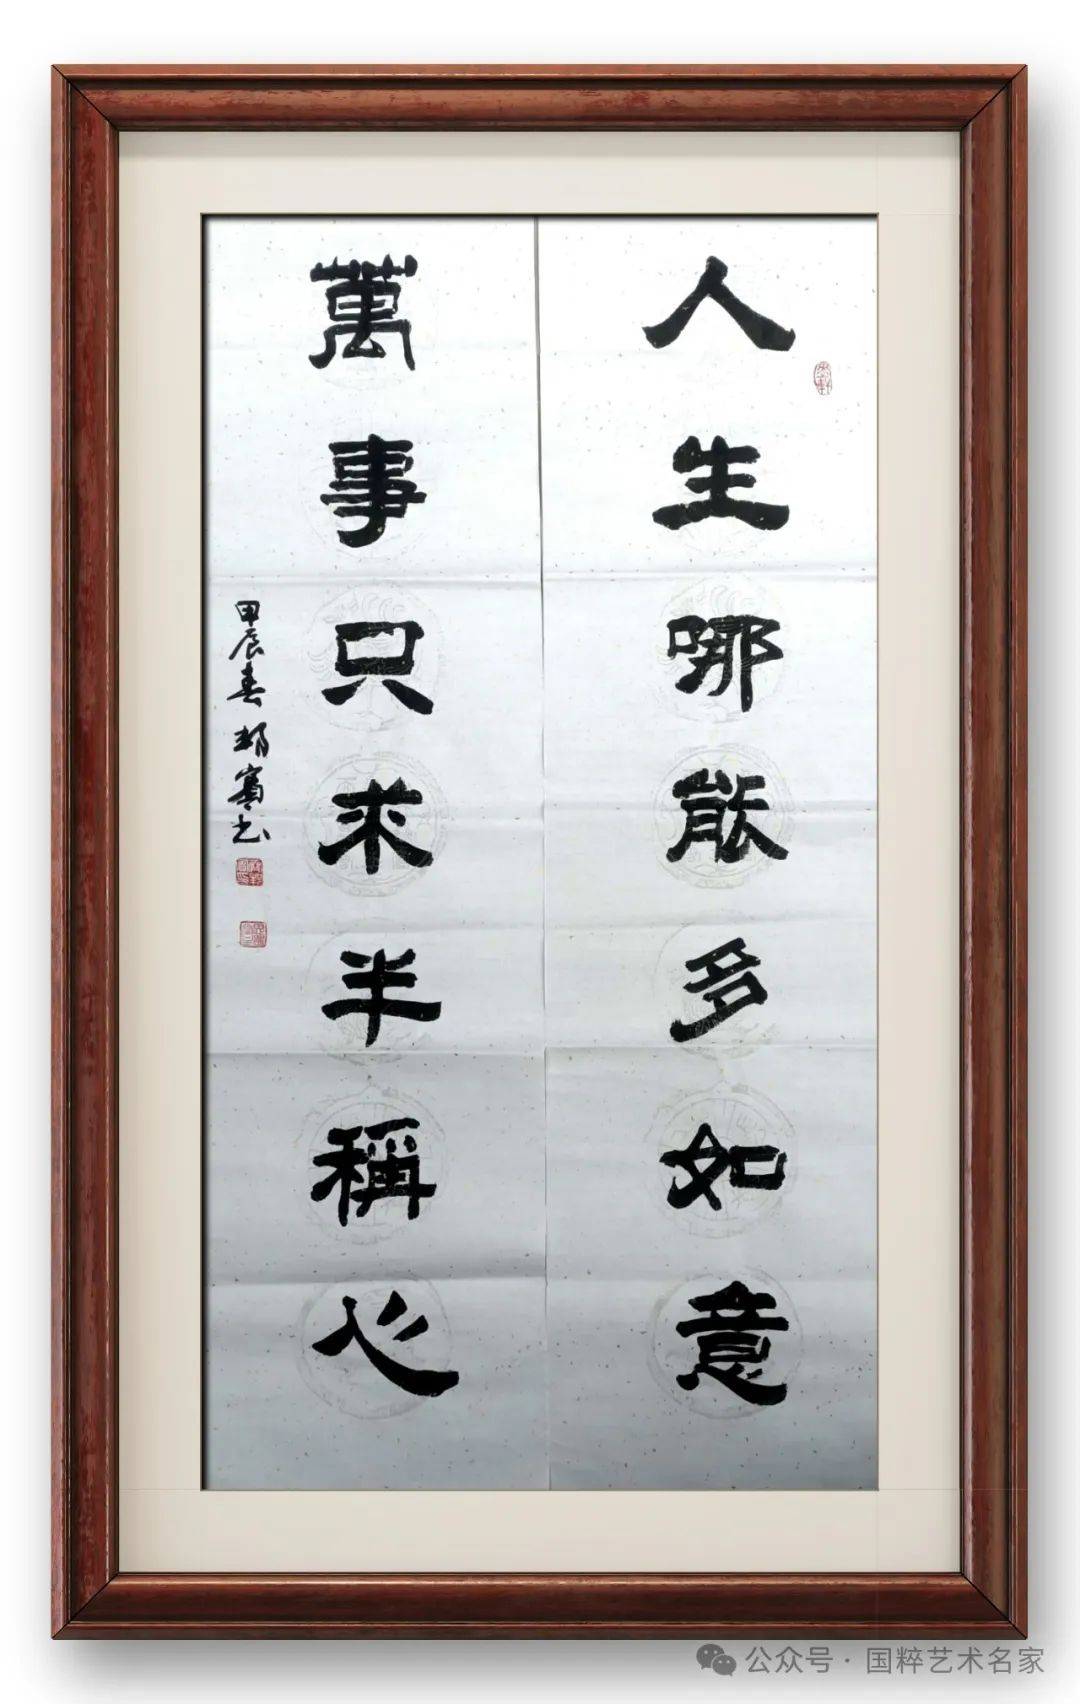 人生哪能多如意
萬事只求半稱心
甲辰春
书
公众号·国粹艺术名家